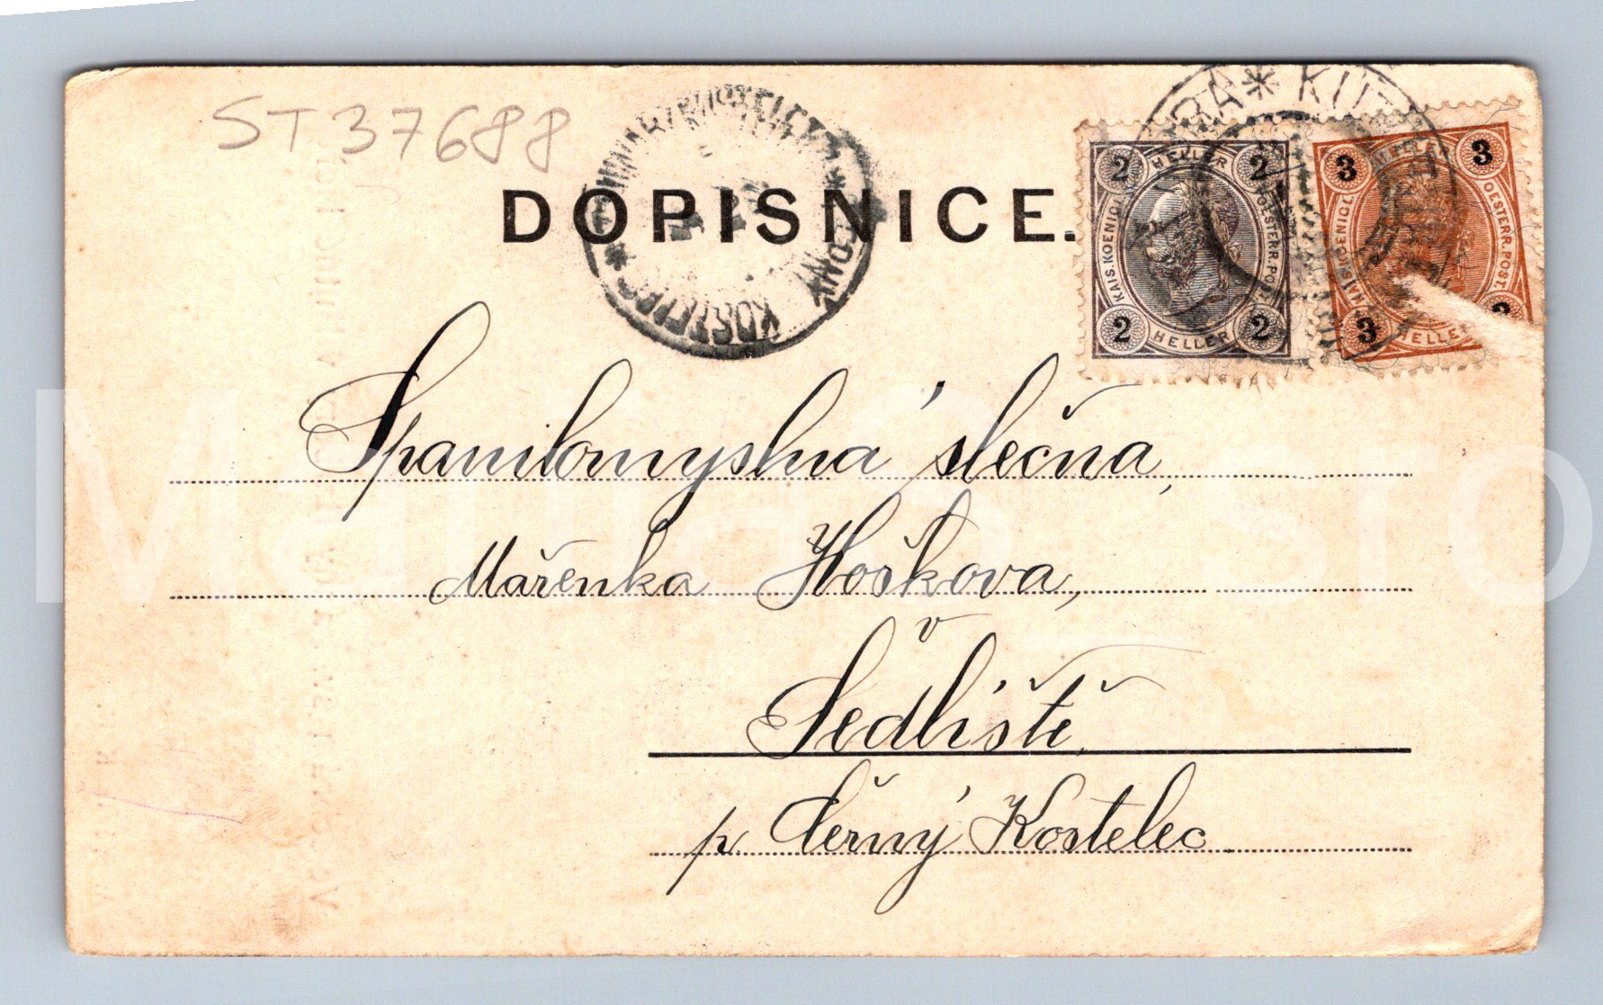 ST 37688
DOPISNICE.
2 HELLER 2
KAIS. KOENIGL. OESTERR. POST.
2 HELLER 2
3 HELLER 3
KAIS. KOENIGL. OESTERR. POST.
3 HELLER 3
Spanilomyslná slečna,
Mařenka Hoškova,
v
Sedlišti
p Černý Kostelec